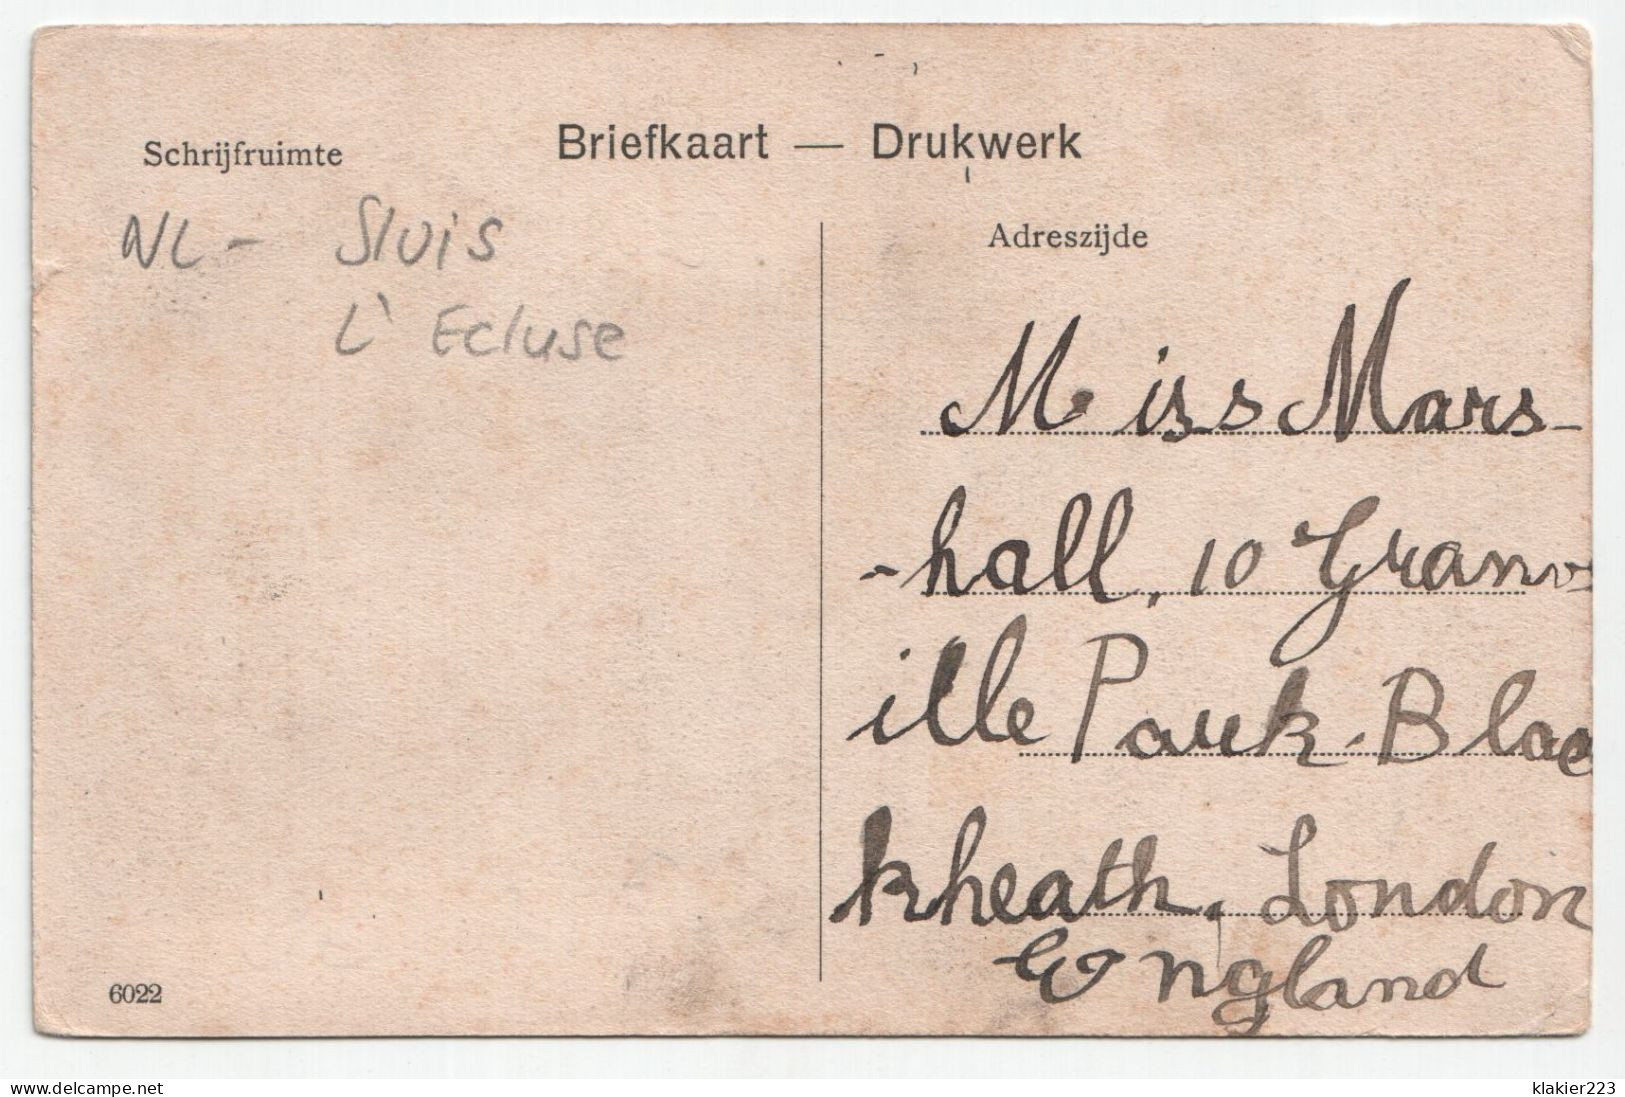 Briefkaart — Drukwerk
Schrijfruimte
NL - Sluis
L' Ecluse
6022
Adreszijde
Miss Mars-
-hall, 10 Granv-
ille Park. Blac
kheath, London
England
www.delcampe.net
klakier223